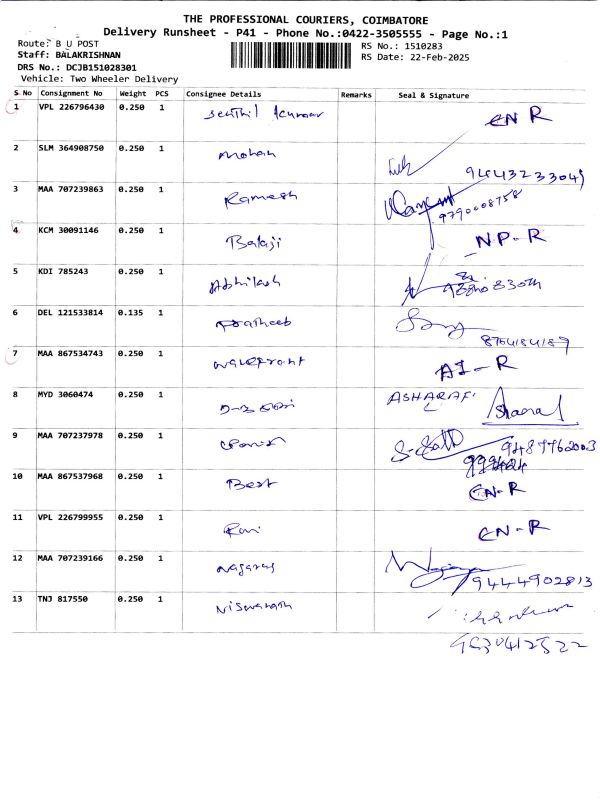 THE PROFESSIONAL COURIERS, COIMBATORE
Delivery Runsheet - P41 - Phone No.:0422-3505555 - Page No.:1
Route: B U POST
RS No.: 1510283
Staff: BALAKRISHNAN
RS Date: 22-Feb-2025
DRS No.: DCJB151028301
Vehicle: Two Wheeler Delivery
S No Consignment No Weight PCS Consignee Details Remarks Seal & Signature
1 VPL 226796430 0.250 1 Senthil kumar CN R
2 SLM 364908750 0.250 1 Mohan
3 MAA 707239863 0.250 1 Ramesh 9790008758
4 KCM 30091146 0.250 1 Balaji NP-R
5 KDI 785243 0.250 1 Abhilash
6 DEL 121533814 0.135 1 Pratheeb 8764184189
7 MAA 867534743 0.250 1 wavefront AI-R
8 MYD 3060474 0.250 1 ASHARAF
9 MAA 707237978 0.250 1 9487962003
10 MAA 867537968 0.250 1 Best CN-R
11 VPL 226799955 0.250 1 Ravi CN-R
12 MAA 707239166 0.250 1 Nagaraj 9444902813
13 TNJ 817550 0.250 1 Viswanath
9630412522